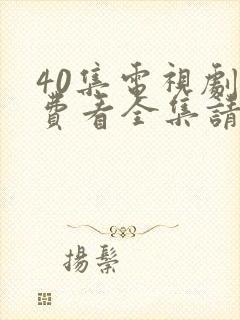 40集電視劇
費看全集請
揚鬃